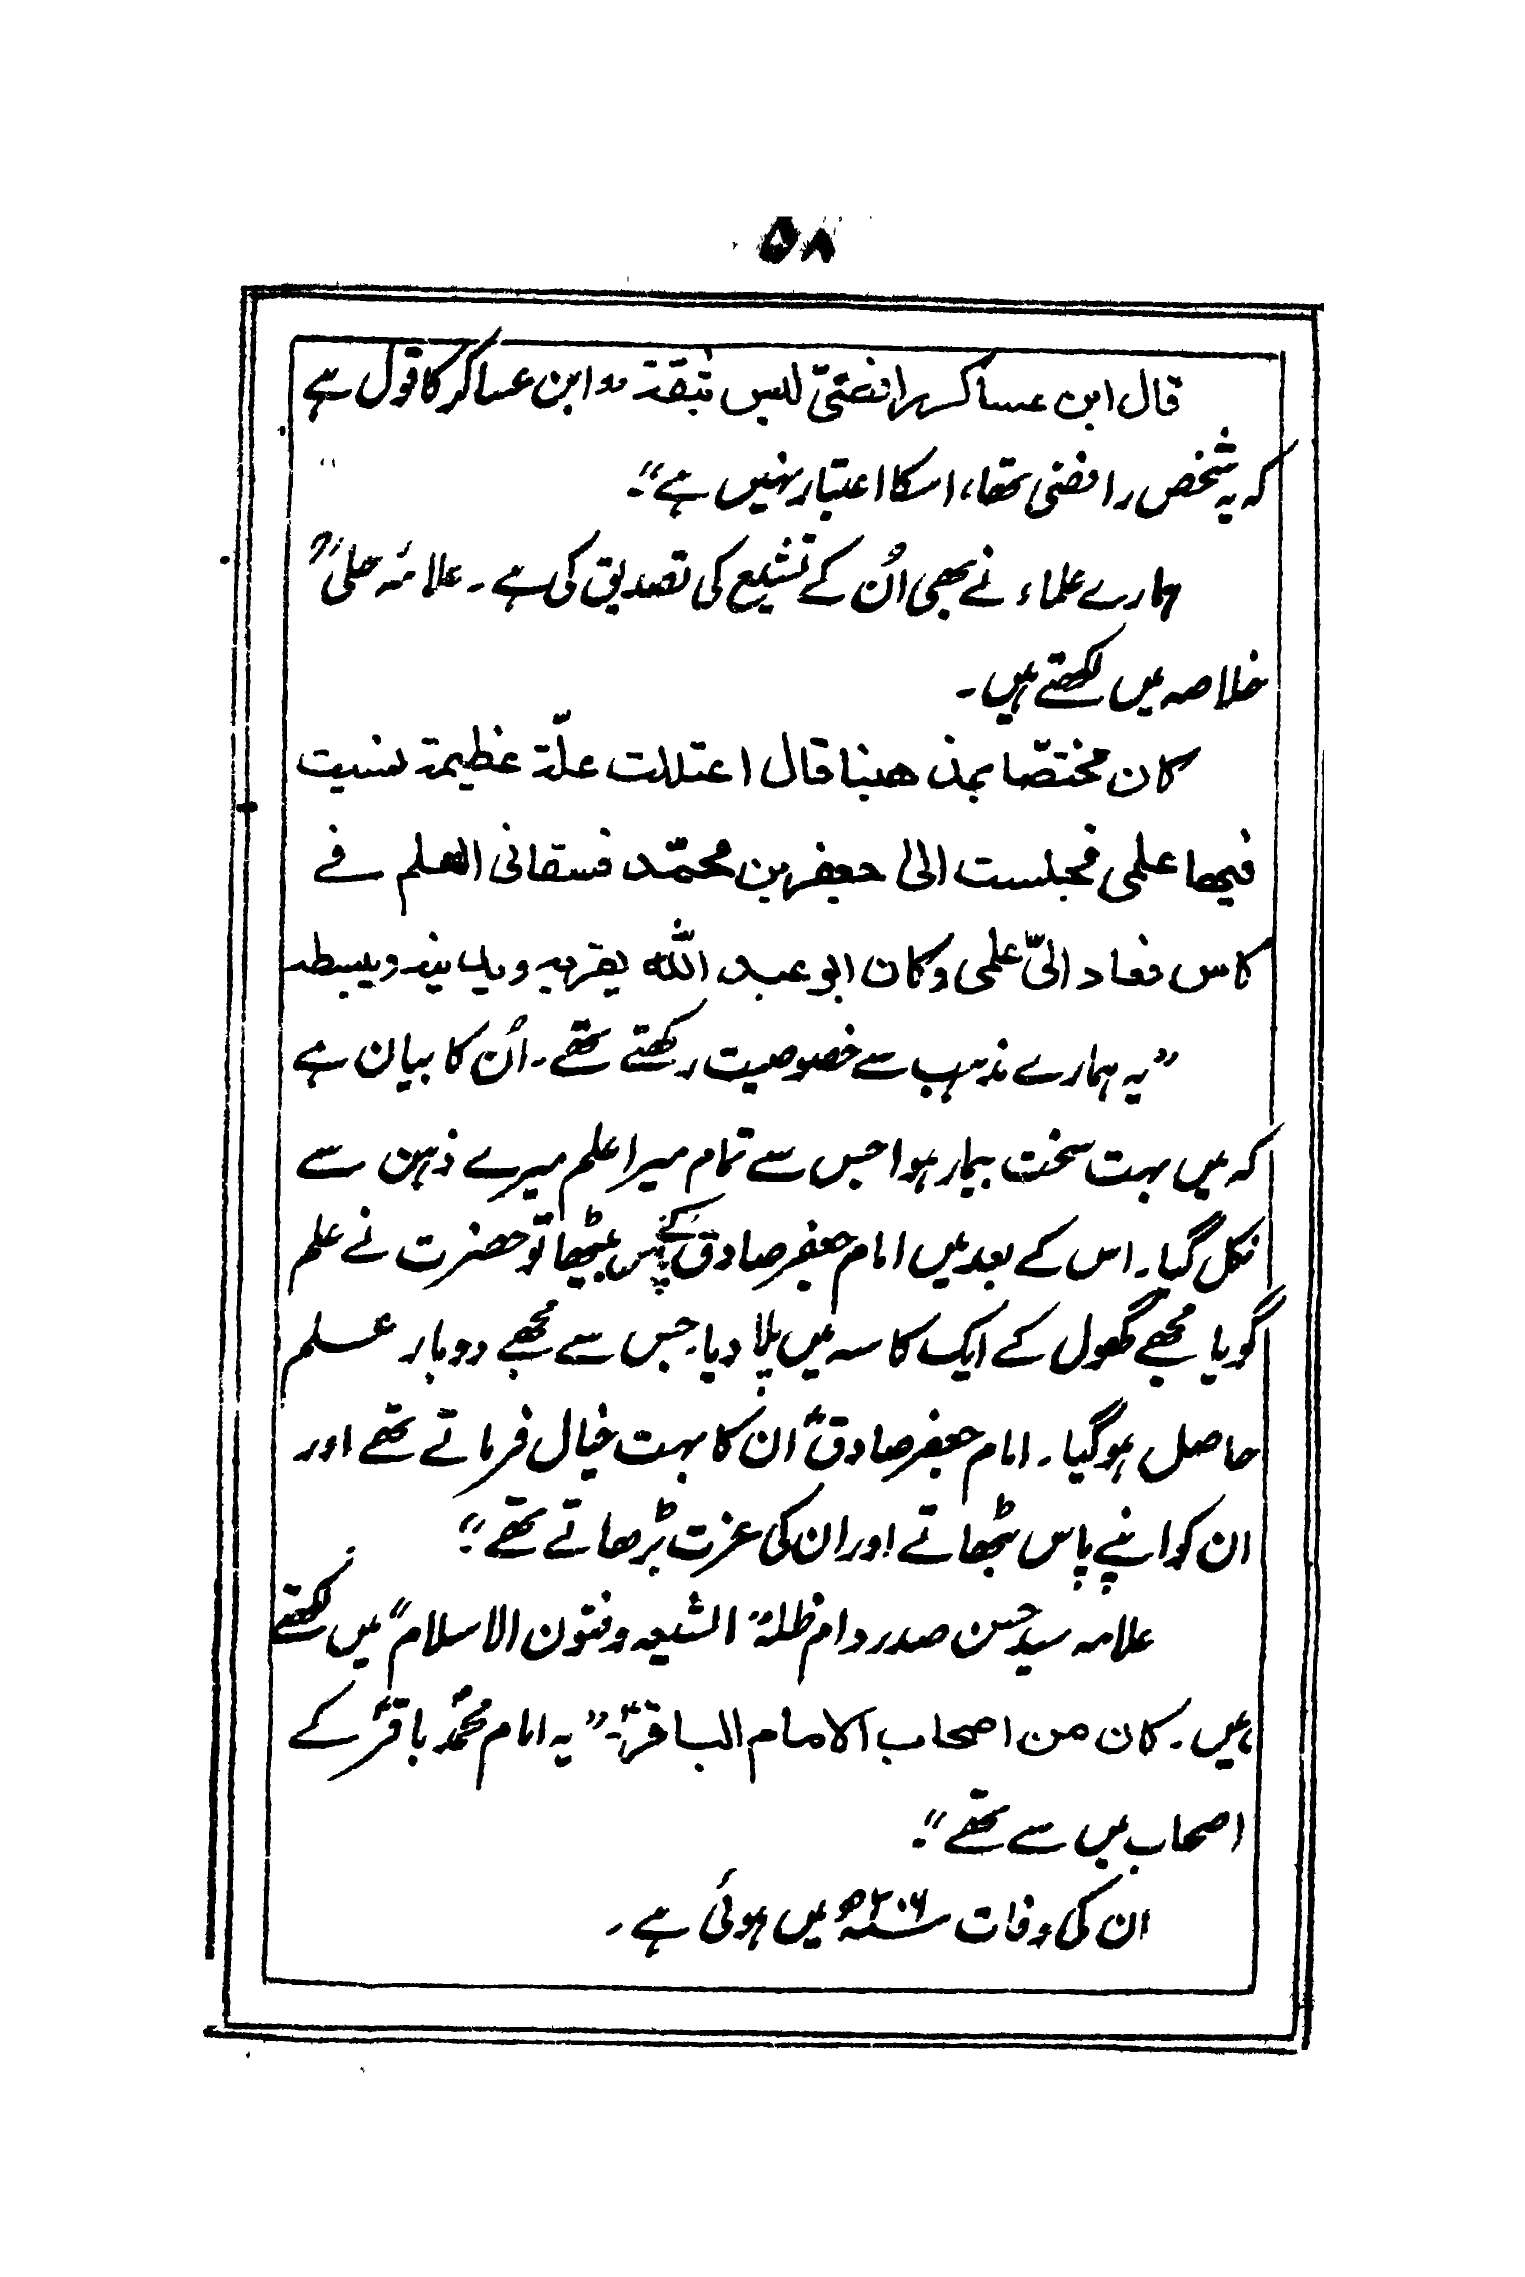 ۵۸
قال ابن عساکر رافضیّ لیس بثقة "ابن عساکر کا قول ہے
کہ یہ شخص رافضی تھا، اسکا اعتبار نہیں ہے"۔
ہمارے علماء نے بھی اُن کے تشیع کی تصدیق کی ہے۔ علامہ حلیؒ
خلاصہ میں لکھتے ہیں۔
کان مختصّا بمذهبنا قال اعتللت علّة عظیمة نسیت
فیها علمی فجلست الی جعفر بن محمّد فسقانی العلم فے
کاس فعاد الیّ علمی و کان ابو عبد اللّٰه یقربه و یدنیه و یبسطه
"یہ ہمارے مذہب سے خصوصیت رکھتے تھے۔ اُن کا بیان ہے
کہ میں بہت سخت بیمار ہوا جس سے تمام میرا علم میرے ذہن سے
نکل گیا۔ اس کے بعد میں امام جعفر صادق کے پاس بیٹھا تو حضرت نے علم
گویا مجھے گھول کے ایک کاسہ میں پلا دیا۔ جس سے مجھے دوبارہ علم
حاصل ہوگیا۔ امام جعفر صادقؑ ان کا بہت خیال فرماتے تھے اور
ان کو اپنے پاس بٹھاتے اور ان کی عزت بڑھاتے تھے"۔
علامہ سید حسن صدر دام ظلہٗ "الشیعہ و فنون الاسلام" میں لکھتے
ہیں۔ کان من اصحاب الامام الباقرؑ۔ "یہ امام محمدؑ باقرؑ کے
اصحاب میں سے تھے"۔
ان کی وفات سنہ ۲۰۶ھ میں ہوئی ہے۔